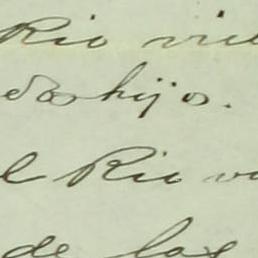 Rio vie
dos hijos.
l Rio vi
de las